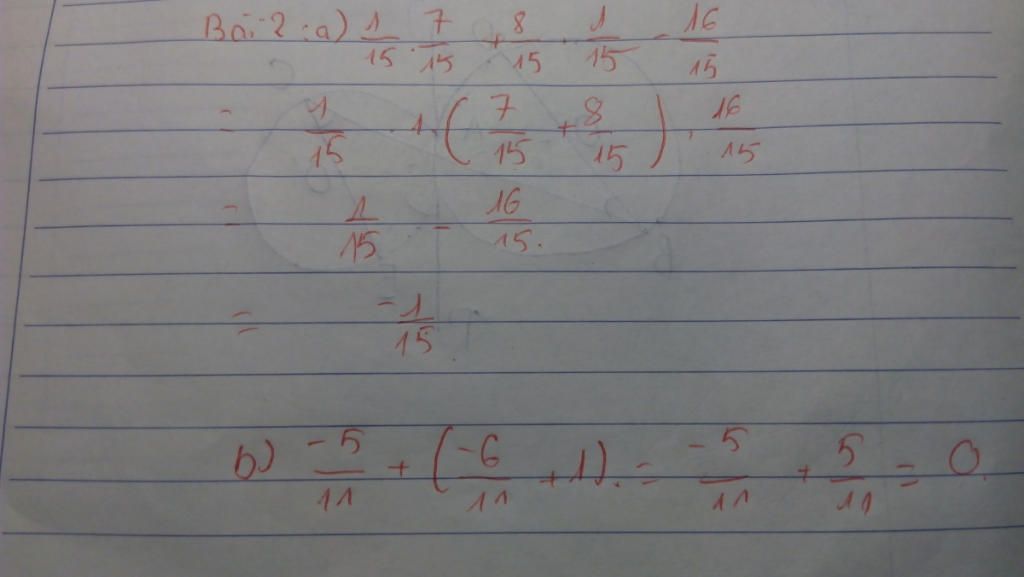 Bài 2: a) 1/15 . 7/15 + 8/15 . 1/15 - 16/15
= 1/15 . 1. (7/15 + 8/15) . 16/15
= 1/15 - 16/15.
= -1/15
b) -5/11 + (-6/11 + 1). = -5/11 + 5/11 = 0.